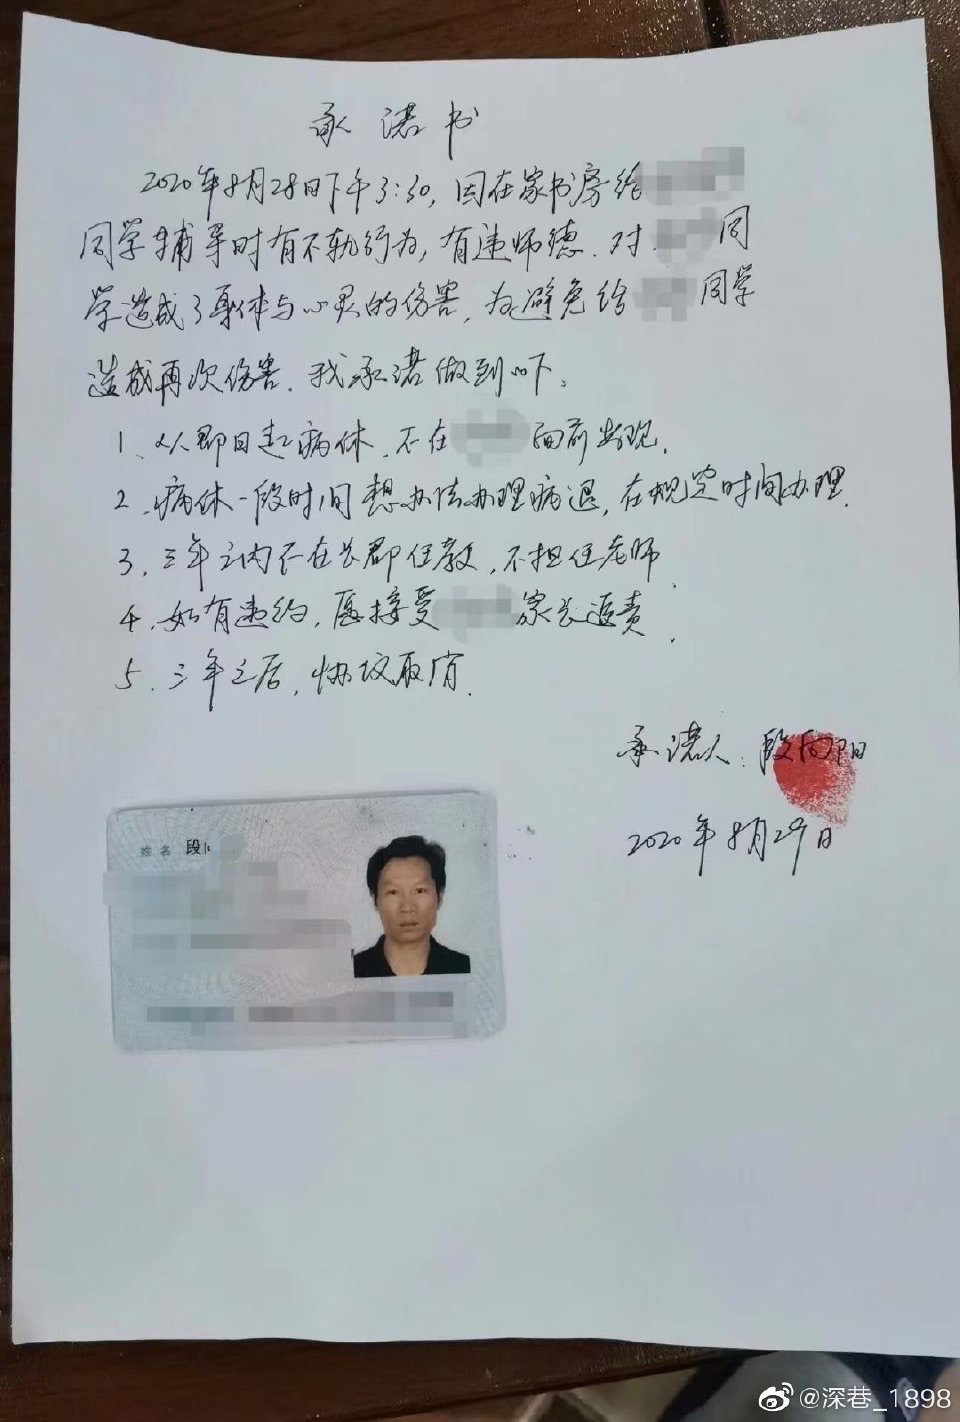 承诺书
2020年8月28日下午3:30,因在家书房给
同学辅导时有不轨行为,有违师德.对 同
学造成了身体与心灵的伤害,为避免给 同学
造成再次伤害.我承诺做到以下、
1、从即日起病休,不在 面前出现.
2、病休一段时间想办法办理病退,在规定时间办理.
3、三年之内不在长郡任教,不担任老师.
4、如有违约,愿接受 家长追责.
5、三年之后,协议取消.
承诺人:段向阳
2020年8月29日
姓名 段
@深巷_1898